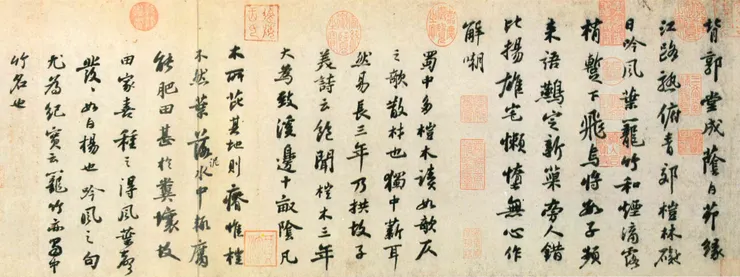 背郭堂成蔭白茅緣
江路熟俯青郊榿林礙
日吟風葉籠竹和煙滴露
梢暫下飛烏將數子頻
來語鷰定新巢旁人錯
比揚雄宅懶惰無心作
解嘲
蜀中多榿木讀如欹仄
之欹散材也獨中薪耳
然易長三年乃拱故子
美詩云飽聞榿木三年
大為致溪邊十畝陰凡
木所芘其地則瘠惟榿
不然葉落泥水中輒腐
能肥田甚於糞壤故
田家喜種之得風葉聲
發發如白楊也吟風之句
尤為紀實云籠竹亦蜀中
竹名也